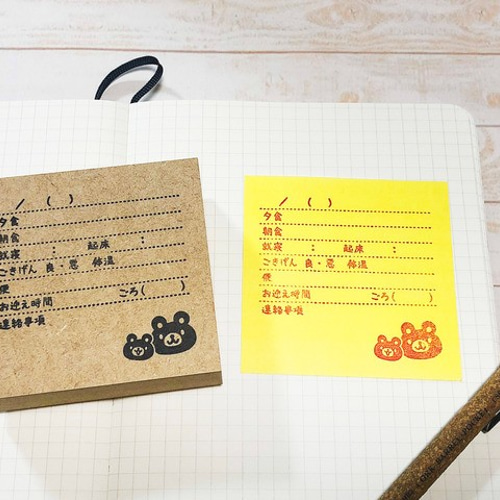 ／　（　）
夕食
朝食
就寝　：　起床　：
ごきげん　良・悪　体温
便
お迎え時間　ごろ（　）
連絡事項
／　（　）
夕食
朝食
就寝　：　起床　：
ごきげん　良・悪　体温
便
お迎え時間　ごろ（　）
連絡事項